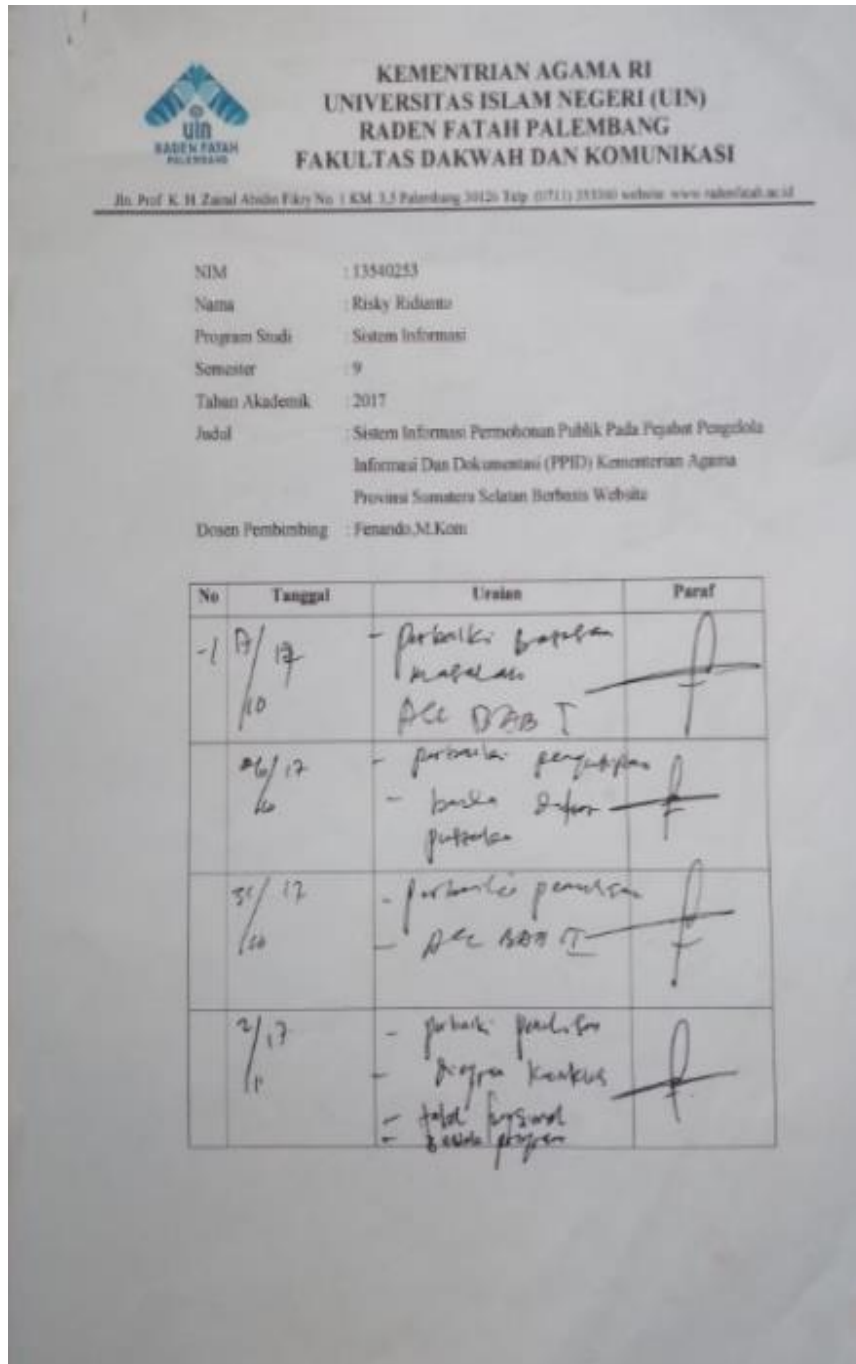 uin
RADEN FATAH
PALEMBANG
KEMENTRIAN AGAMA RI
UNIVERSITAS ISLAM NEGERI (UIN)
RADEN FATAH PALEMBANG
FAKULTAS DAKWAH DAN KOMUNIKASI
Jln. Prof. K. H. Zainal Abidin Fikry No. 1 KM. 3,5 Palembang 30126 Telp. website: www.radenfatah.ac.id
NIM : 13540253
Nama : Risky Ridianto
Program Studi : Sistem Informasi
Semester : 9
Tahun Akademik : 2017
Judul : Sistem Informasi Permohonan Publik Pada Pejabat Pengelola
Informasi Dan Dokumentasi (PPID) Kementerian Agama
Provinsi Sumatera Selatan Berbasis Website
Dosen Pembimbing : Fenando,M.Kom
No Tanggal Uraian Paraf
17/10 17 - perbaiki batasan
masalah
ACC BAB I
26/10 17 - perbaiki pengutipan
- daftar
pustaka
31/10 17 - perbaiki penulisan
- ACC BAB
2/11 17 - perbaiki penulisan
- diagram konteks
- tabel
- program